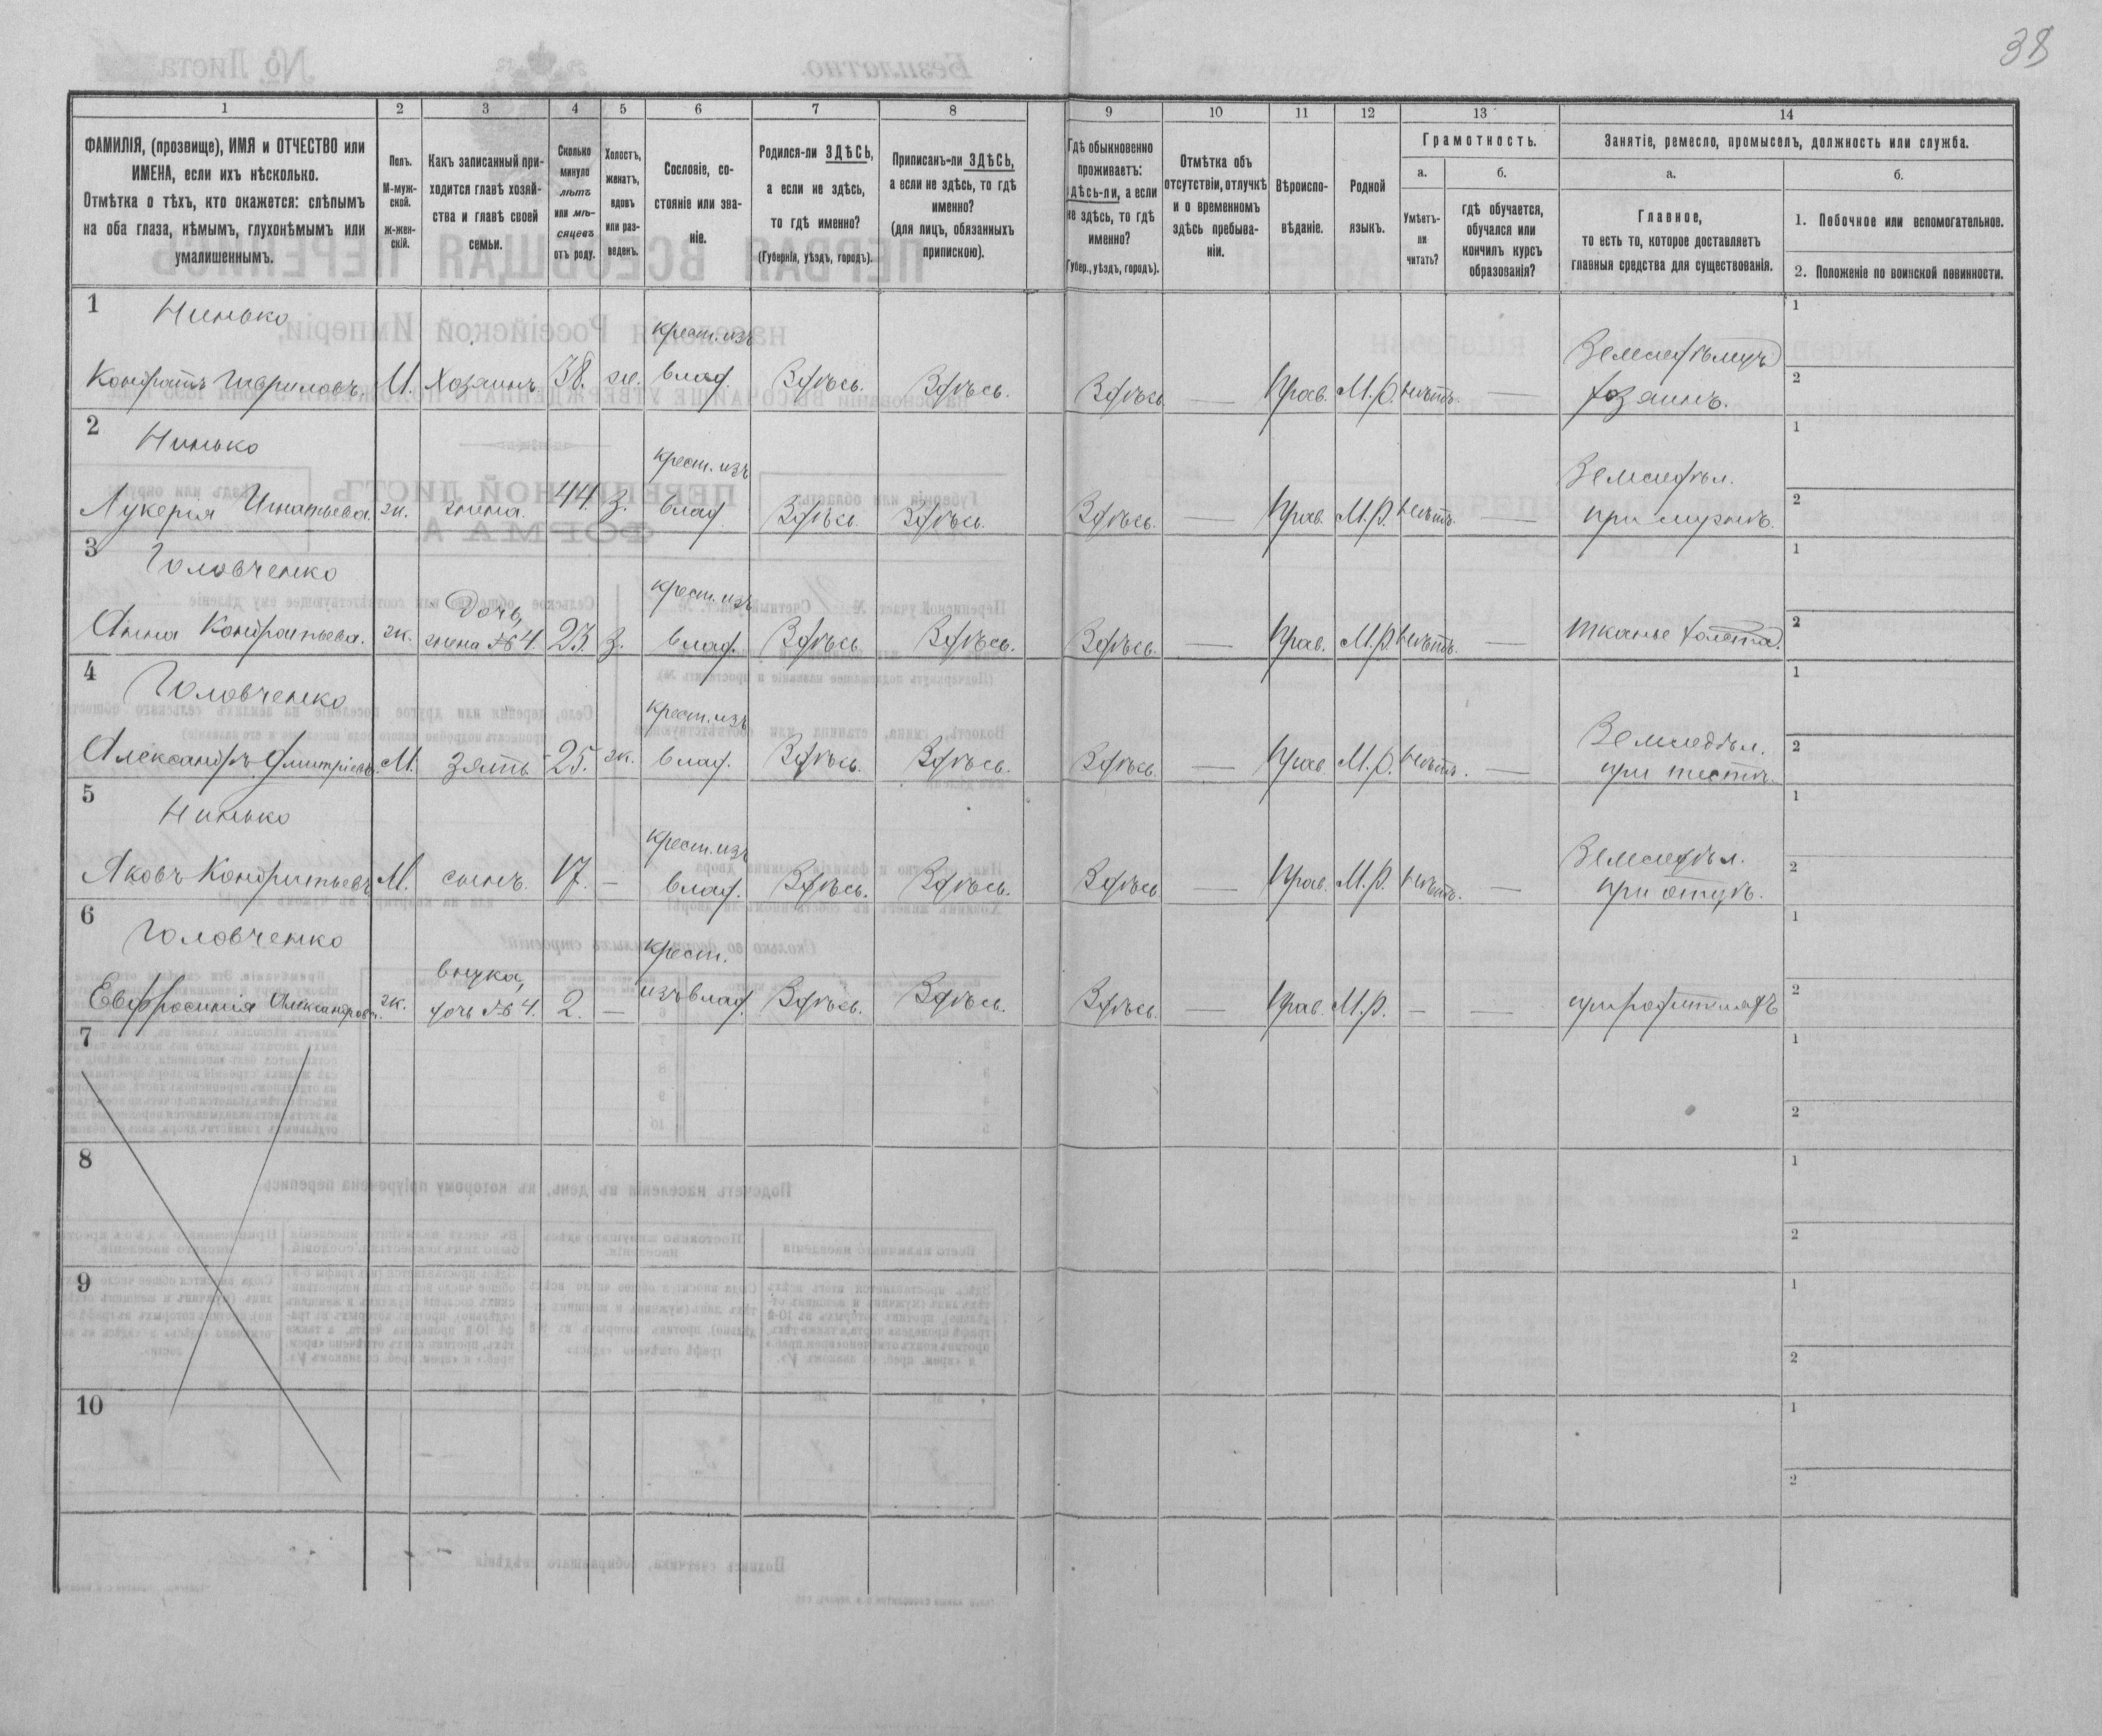 38
1 2 3 4 5 6 7 8 9 10 11 12 13 14
ФАМИЛІЯ, (прозвище), ИМЯ и ОТЧЕСТВО или
ИМЕНА, если ихъ нѣсколько.
Отмѣтка о тѣхъ, кто окажется: слѣпымъ
на оба глаза, нѣмымъ, глухонѣмымъ или
умалишеннымъ.
Полъ.
М-муж-
ской.
ж-жен-
скій.
Какъ записанный при-
ходится главѣ хозяй-
ства и главѣ своей
семьи.
Сколько
минуло
лѣтъ
или мѣ-
сяцевъ
отъ роду.
Холостъ,
женатъ,
вдовъ
или раз-
веденъ.
Сословіе, со-
стояніе или зва-
ніе.
Родился-ли ЗДѢСЬ,
а если не здѣсь,
то гдѣ именно?
(Губернія, уѣздъ, городъ).
Приписанъ-ли ЗДѢСЬ,
а если не здѣсь, то гдѣ
именно?
(для лицъ, обязанныхъ
припискою).
Гдѣ обыкновенно
проживаетъ:
здѣсь-ли, а если
не здѣсь, то гдѣ
именно?
(Губер., уѣздъ, городъ).
Отмѣтка объ
отсутствіи, отлучкѣ
и о временномъ
здѣсь пребыва-
ніи.
Вѣроиспо-
вѣданіе.
Родной
языкъ.
Грамотность.
а.
Умѣетъ-
ли
читать?
б.
гдѣ обучается,
обучался или
кончилъ курсъ
образованія?
Занятіе, ремесло, промыселъ, должность или служба.
а.
Главное,
то есть то, которое доставляетъ
главныя средства для существованія.
б.
1. Побочное или вспомогательное.
2. Положеніе по воинской повинности.
1 Нинько крест. изъ Земледѣлецъ 1
Кондратъ Гавриловъ. М. Хозяинъ 38. ж. влад. Здѣсь. Здѣсь. Здѣсь — Прав. М.Р. нѣтъ. — хозяинъ. 2
2 Нинько крест. изъ Земледѣл. 1
Лукерія Игнатьева. ж. жена. 44. з. влад. Здѣсь. Здѣсь. Здѣсь. — Прав. М.Р. нѣтъ. — при мужѣ. 2
3 Головченко Дочь, крест. изъ 1
Анна Кондратьева. ж. жена №4. 23. з. влад. Здѣсь. Здѣсь. Здѣсь. — Прав. М.Р. нѣтъ. — тканье холста. 2
4 Головченко крест. изъ Земледѣл. 1
Александръ Дмитріевъ. М. Зять. 25. ж. влад. Здѣсь. Здѣсь. Здѣсь. — Прав. М.Р. нѣтъ. — при тестѣ. 2
5 Нинько крест. изъ Земледѣл. 1
Яковъ Кондратьевъ М. сынъ. 17. — влад. Здѣсь. Здѣсь. Здѣсь — Прав. М.Р. нѣтъ. — при отцѣ. 2
6 Головченко внучка, крест. 1
Евфросинія Александрова. ж. дочь №4. 2. — изъ влад. Здѣсь. Здѣсь. Здѣсь. — Прав. М.Р. — — 2
7 1
2
8 1
2
9 1
2
10 1
2